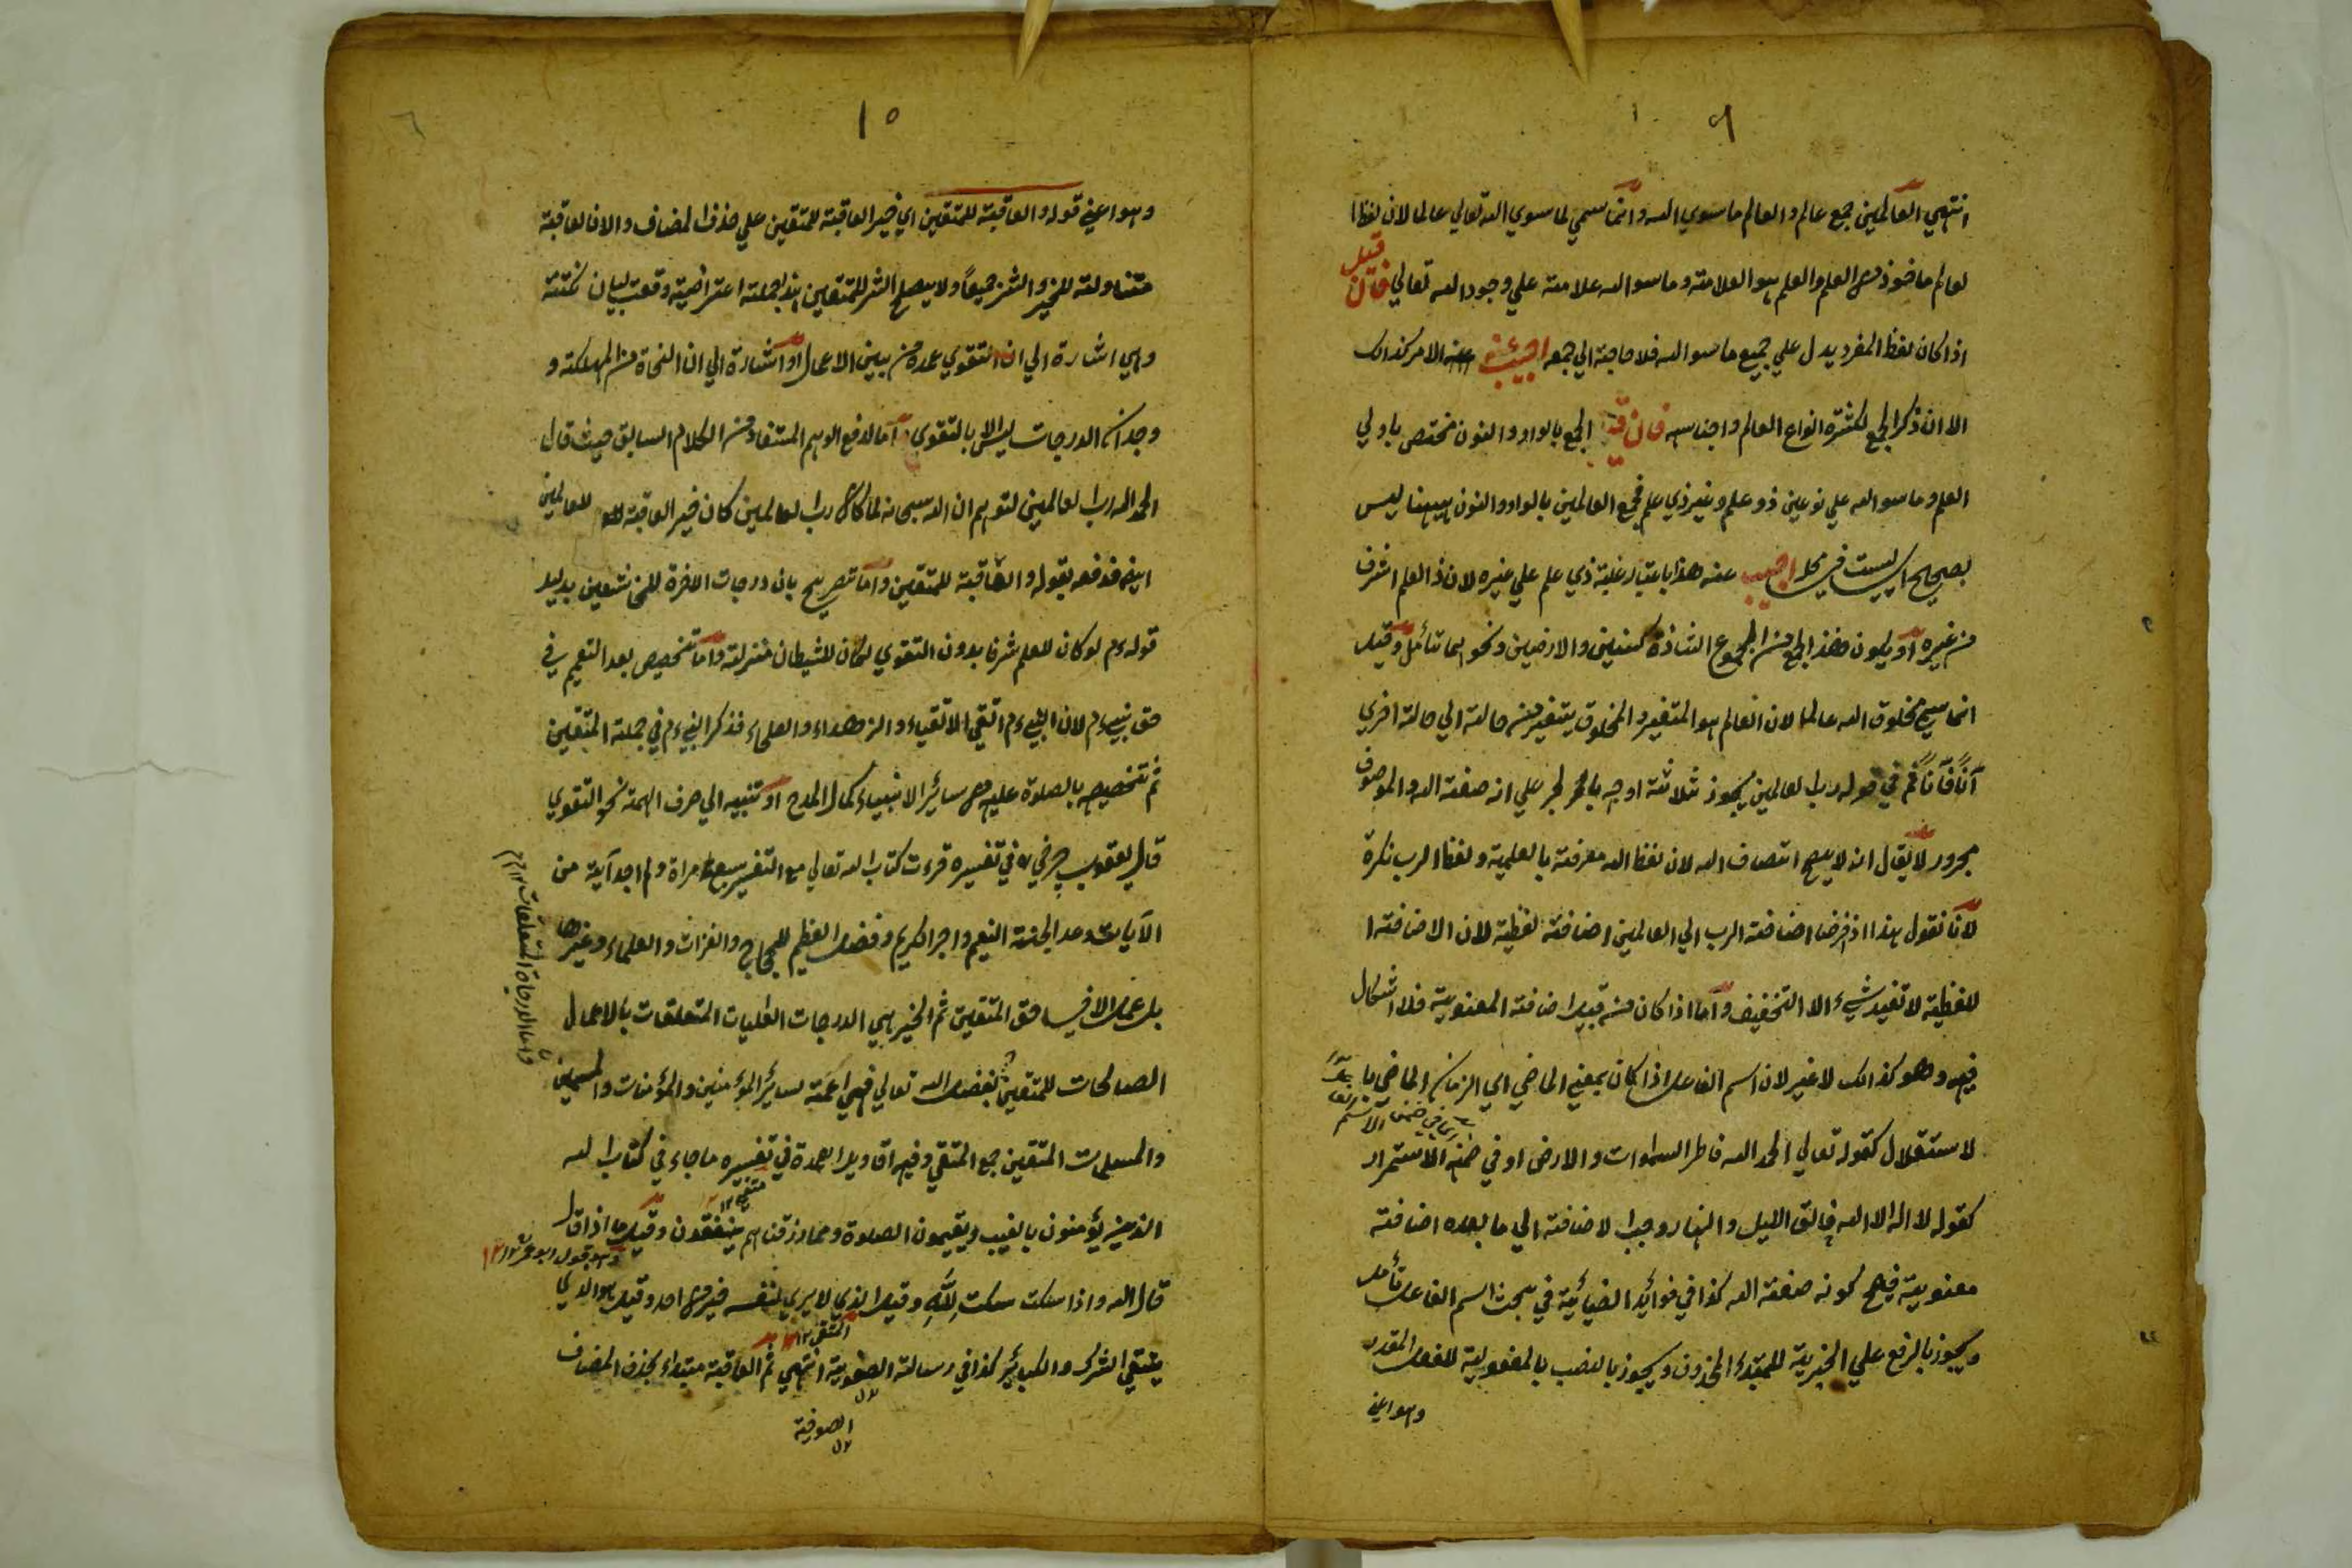 انتهي العالمين جمع عالم والعالم ما سوي الله وانما سمي لما سوي الله تعالي عالما لان لفظ ا
لعالم ماخوذ من العلم والعلم هو العلامة وما سوا الله علامة علي وجود الله تعالي فان قيل
اذا كان لفظ المفرد يدل علي جميع ما سوا الله فلا حاجة الي جمعه اجيب عنه الامر كذالك
الا ان ذكر الجمع لكثرة انواع العالم واجناسه فان قيل الجمع بالواو والنون مختص باولي
العلم وما سوا الله علي نوعين ذو علم وغير ذي علم فجمع العالمين بالواو والنون ههنا ليس
بصحيح اي ليست في محله اجيب عنه هذا باعتبار غلبة ذي علم علي غيره لان ذا العلم اشرف
من غيره او يكون هذا الجمع من الجموع الشاذة كسنين والارضين ونحوهما تأمل وقيل
انما سمي مخلوق الله عالما لان العالم هو المتغير والمخلوق يتغير من حالة الي حالة اخري
آناً فآناً ثم في قوله رب العالمين يجوز ثلاثة اوجه بالجر علي انه صفة الله والموصوف
مجرور لا يقال انه لا يصح اتصاف الله لان لفظ الله معرفة بالعلمية ولفظ الرب نكرة
لانا نقول هذا اذا فرضنا اضافة الرب الي العالمين اضافة لفظية لان الاضافة ا
للفظية لا تفيد شيء الا التخفيف واما اذا كان من قبيل اضافة المعنوية فلا اشكال
فيه وهو كذالك لا غير لان اسم الفاعل اذا كان بمعني الماضي اي الزمان الماضي با
لاستقلال كقوله تعالي الحمد الله فاطر السموات والارض او في ضمن الاستمرار
كقوله لا اله الا الله فالق الليل والنهار وجب الاضافة الي ما بعده اضافة
معنوية فيصح كونه صفة الله كذا في فوائد الضيائية في بحث اسم الفاعل تأمل
ويجوز بالرفع علي الخبرية للمبتداء المحذوف ويجوز بالنصب بالمفعولية للفعل المقدر
وهو اعني
١٥
وهو اعني قوله والعاقبة للمتقين اي خير العاقبة للمتقين علي حذف المضاف والا فالعاقبة
متناولة للخير والشر جميعاً ولا يصلح الشر للمتقين هذا جملة اعتراضية وقعت لبيان نكتة
وهي اشارة الي ان التقوي عمدة من بين الاعمال او اشارة الي ان النجاة من المهلكة و
وجدان الدرجات ليس الا بالتقوي اما لدفع الوهم المستفاد من الكلام السابق حيث قال
الحمد الله رب العالمين لتوهم ان الله سبحانه لما كان رب العالمين كان خير العاقبة للعالمين
ايضا فدفعه بقوله والعاقبة للمتقين واما تصريح بان درجات الاخرة للخاشعين بدليل
قوله ءم لو كان للعلم شرفا بدون التقوي لكان للشيطان منزلة واما تخصيص بعد التعميم في
حق نبيه ءم لان النبي ءم اتقي الاتقياء والزهداء والعلماء فذكر النبي ءم في جملة المتقين
ثم تخصيصه بالصلوة عليه من سائر الانبياء كمال المدح او تنبيه الي صرف الهمة نحو التقوي
قال يعقوب چرخي في تفسيره قرءت كتاب الله تعالي مع التفسير سبع مراة ولم اجد آية من
الآيات وعد الجنة النعيم واجر الكريم وفضل العظيم للحجاج والغزات والعلماء وغيرها
بل عمل الا في حق المتقين ثم الخير هي الدرجات العليات المتعلقات بالاعمال
الصالحات للمتقين بفضل الله تعالي فهي اعمة لسائر المؤمنين والمؤمنات والمسلمين
والمسلمات المتقين جمع المتقي وفيه اقاويل العمدة في تفسيره ما جاء في كتاب الله
الذين يؤمنون بالغيب ويقيمون الصلوة ومما رزقناهم ينفقون وقيل ما اذا قال
قال الله واذا سكت سكت لِلّٰهِ وقيل الذي لا يري لنفسه خير من احد وقيل هو الذي
يتقي الشرك والكبائر كذا في رسالة الصوفية انتهي ثم العاقبة مبتداء بحذف المضاف
الصوفية